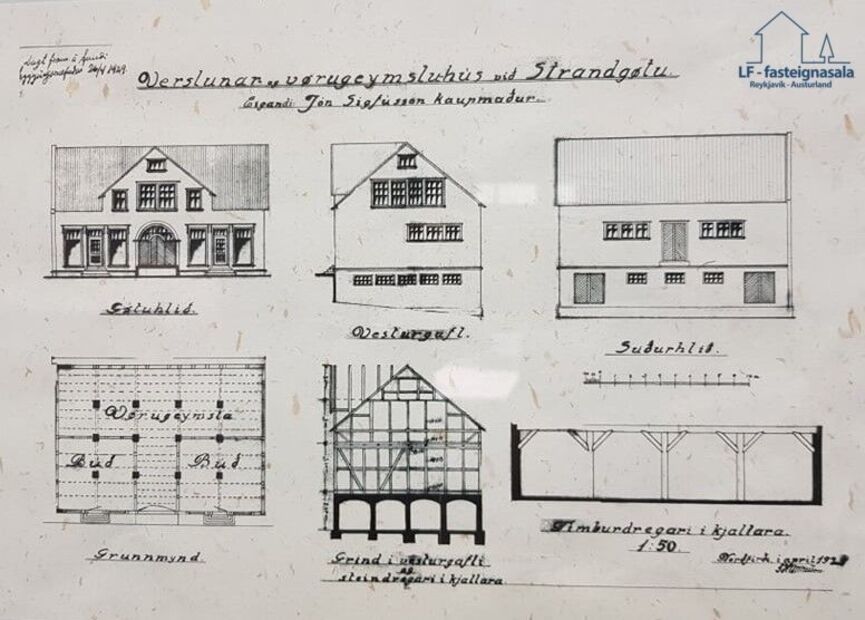 Lagt fram á fundi
byggingarnefndar 26/4 1929
LF - fasteignasala
Reykjavík - Austurland
Verslunar og vörugeymsluhús við Strandgötu.
Eigandi Jón Sigfússon kaupmaður.
Götuhlið.
Vesturgafl.
Suðurhlið.
Vörugeymsla
Búð Búð
Grunnmynd.
Grind í vesturgafli
og
steindregari í kjallara.
Timburdregari í kjallara.
1:50.
Norðfirði í apríl